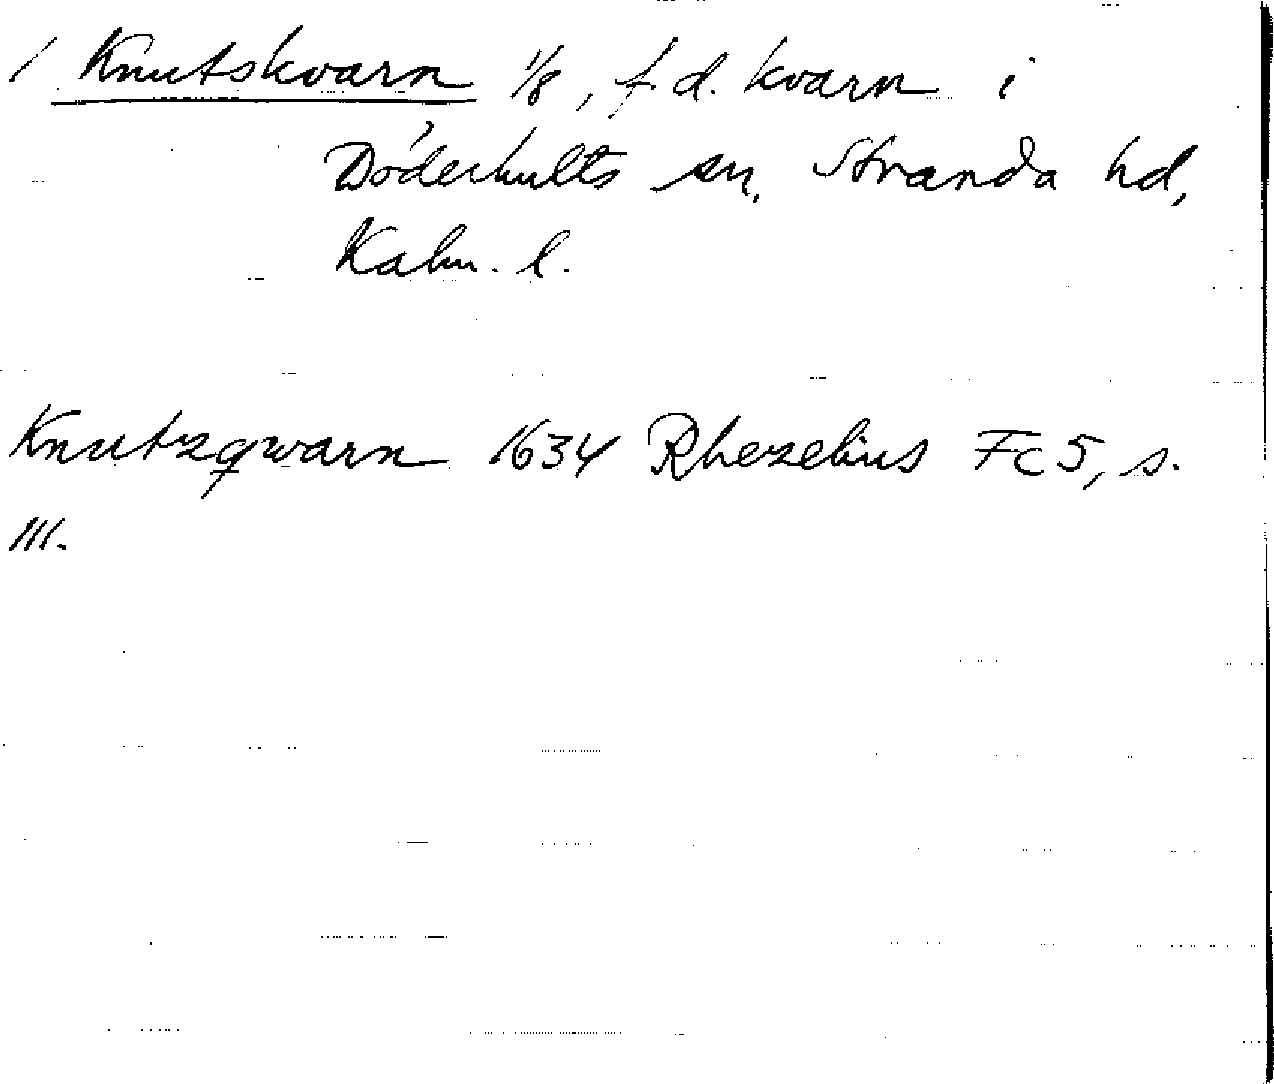 / Knutskvarn 1/8, f.d. kvarn i
Döderhults sn, Stranda hd,
Kalm. l.
Knutzqwarn 1634 Rhezelius Fc5, s.
111.